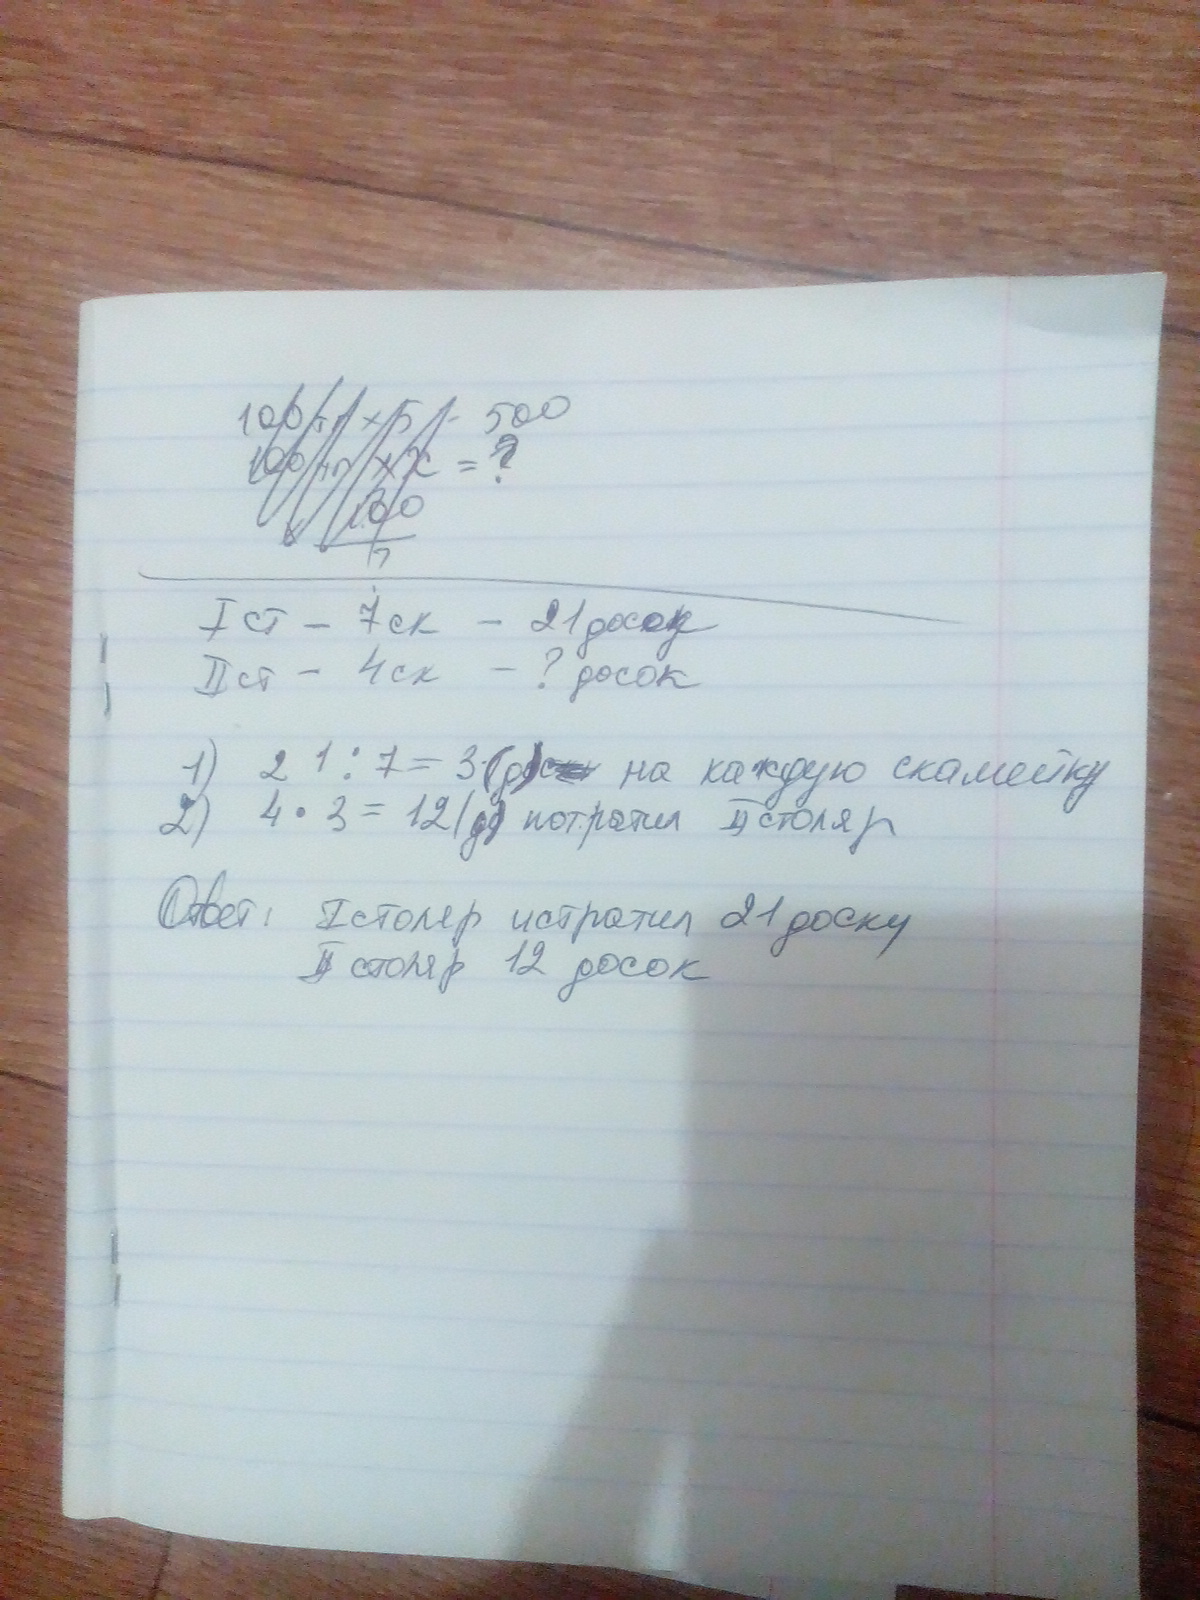 500
= ?
100
I ст – 7 ск – 21 доск
II ст – 4 ск – ? досок
1) 21 : 7 = 3 (д) на каждую скамейку
2) 4 · 3 = 12 (д) потратил II столяр
Ответ: I столяр истратил 21 доску
II столяр 12 досок